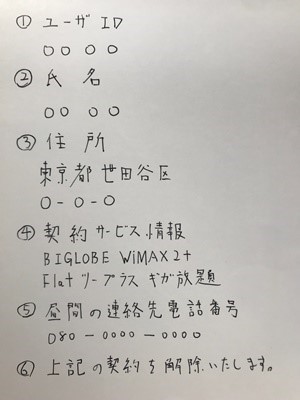 ① ユーザID
○○ ○○
② 氏名
○○ ○○
③ 住所
東京都世田谷区
○-○-○
④ 契約サービス情報
BIGLOBE WiMAX2+
Flatツープラスギガ放題
⑤ 昼間の連絡先電話番号
080-0000-0000
⑥ 上記の契約を解除いたします。